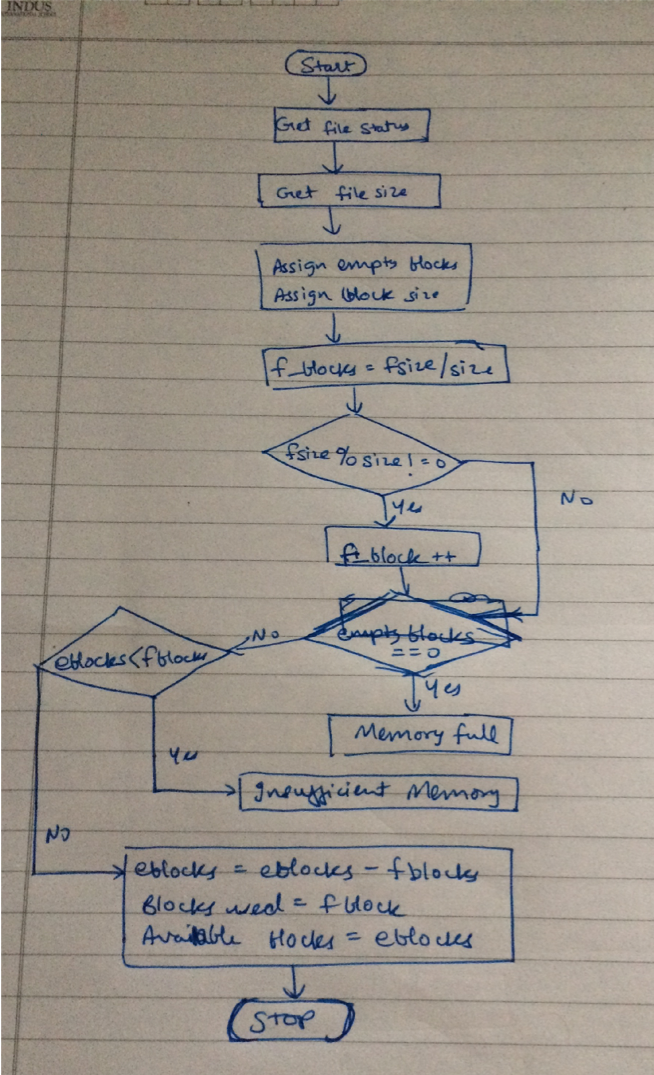 INDUS
Start
Get file status
Get file size
Assign empts blocks
Assign block size
f_blocks = fsize/size
fsize % size != 0
No
Yes
f_block ++
empts blocks
== 0
No
eblocks < fblocks
Yes
Memory full
Yes
Insufficient Memory
NO
eblocks = eblocks - fblocks
Blocks used = fblock
Available blocks = eblocks
STOP